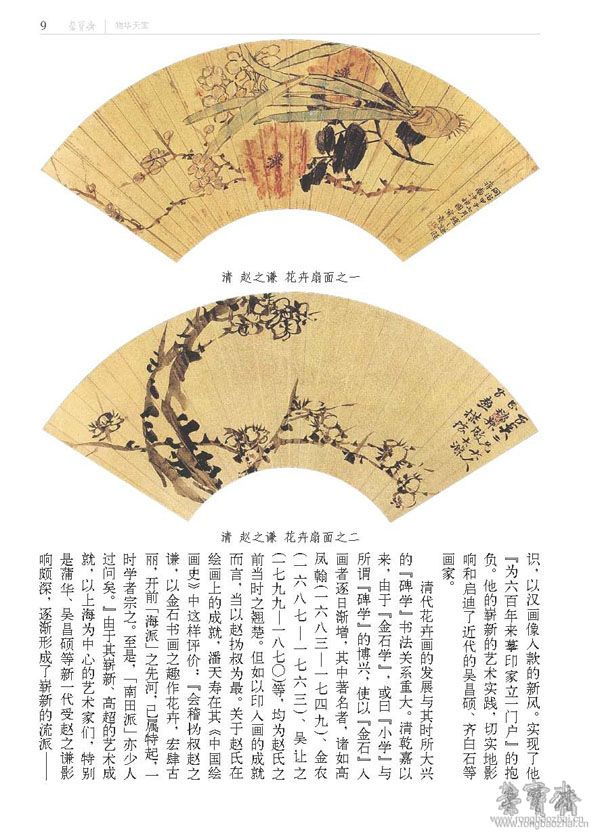 9
荣宝斋
物华天宝
清 赵之谦 花卉扇面之一
清 赵之谦 花卉扇面之二
识，以汉画像入款的新风。实现了他
『为六百年来摹印家立一门户』的抱
负。他的崭新的艺术实践，切实地影
响和启迪了近代的吴昌硕、齐白石等
画家。
清代花卉画的发展与其时所大兴
的『碑学』书法关系重大。清乾嘉以
来，由于『金石学』，或曰『小学』与
所谓『碑学』的博兴，使以『金石』入
画者逐日渐增，其中著名者，诸如高
凤翰（一六八三—一七四九）、金农
（一六八七—一七六三）、吴让之
（一七九九—一八七〇）等，均为赵氏之
前当时之翘楚。但如以印人画的成就
而言，当以赵㧑叔为最。关于赵氏在
绘画上的成就，潘天寿在其《中国绘
画史》中这样评价：『会稽㧑叔赵之
谦，以金石书画之趣作花卉，宏肆古
丽，开前「海派」之先河；己属特起，一
时学者宗之。至是，「南田派」亦少人
过问矣。』由于其崭新、高超的艺术成
就，以上海为中心的艺术家们，特别
是蒲华、吴昌硕等新一代受赵之谦影
响颇深，逐渐形成了崭新的流派——
荣宝斋
www.rongbaozhai.cn